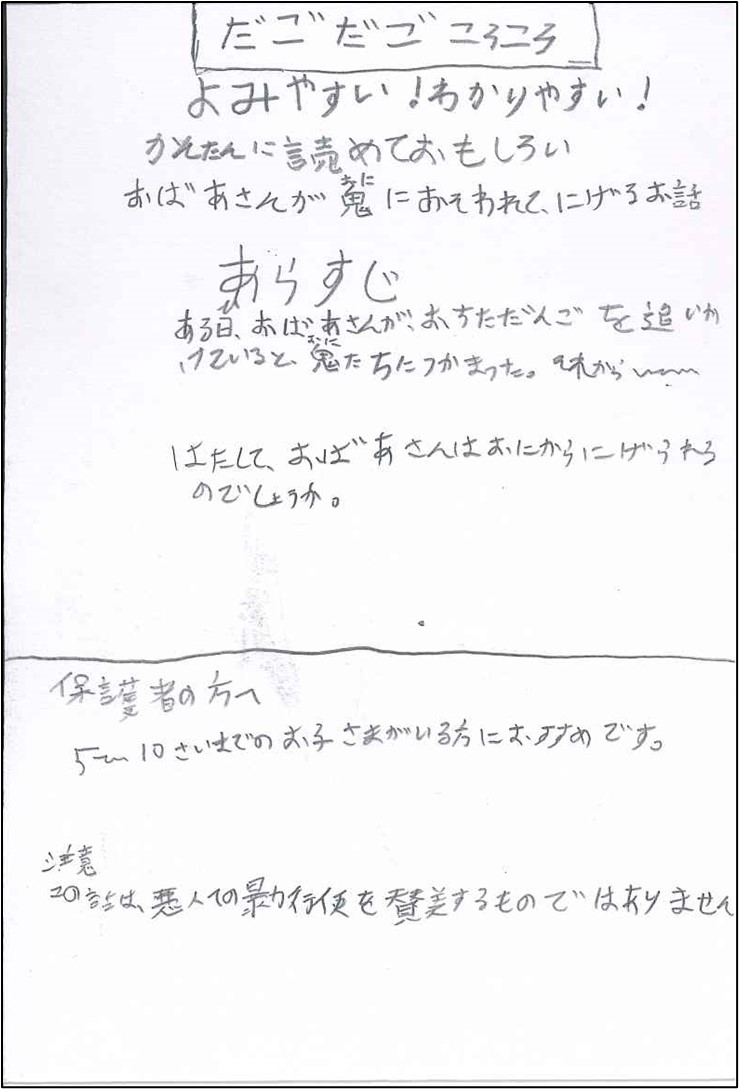 だごだごころころ
よみやすい！わかりやすい！
かんたんに読めておもしろい
おばあさんが鬼におそわれて、にげるお話
おに
あらすじ
ある日、おばあさんが、おちただんごを追いか
けていると、鬼たちにつかまった。それから〜〜
おに
はたして、おばあさんはおにからにげられる
のでしょうか。
保護者の方へ
5〜10さいまでのお子さまがいる方におすすめです。
注意
この話は、悪人への暴力行使を賛美するものではありません